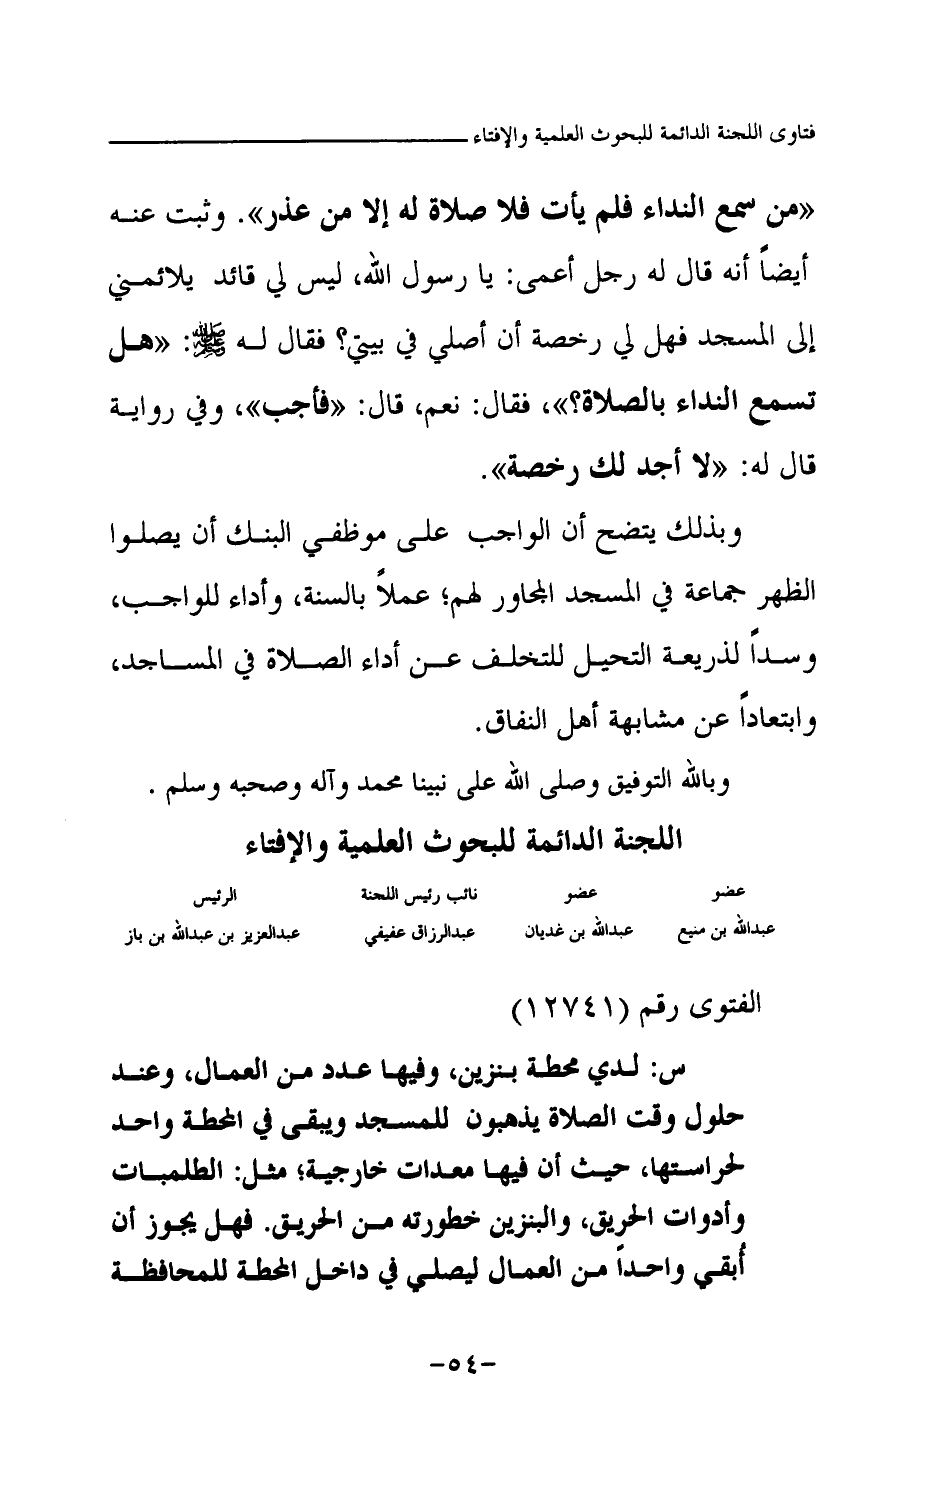 فتاوى اللجنة الدائمة للبحوث العلمية والإفتاء
«من سمع النداء فلم يأت فلا صلاة له إلا من عذر». وثبت عنه
أيضاً أنه قال له رجل أعمى: يا رسول الله، ليس لي قائد يلائمني
إلى المسجد فهل لي رخصة أن أصلي في بيتي؟ فقال له ﷺ: «هل
تسمع النداء بالصلاة؟»، فقال: نعم، قال: «فأجب»، وفي رواية
قال له: «لا أجد لك رخصة».
وبذلك يتضح أن الواجب على موظفي البنك أن يصلوا
الظهر جماعة في المسجد المجاور لهم؛ عملاً بالسنة، وأداء للواجب،
وسداً لذريعة التحيل للتخلف عن أداء الصلاة في المساجد،
وابتعاداً عن مشابهة أهل النفاق.
وبالله التوفيق وصلى الله على نبينا محمد وآله وصحبه وسلم .
اللجنة الدائمة للبحوث العلمية والإفتاء
عضو عضو نائب رئيس اللجنة الرئيس
عبدالله بن منيع عبدالله بن غديان عبدالرزاق عفيفي عبدالعزيز بن عبدالله بن باز
الفتوى رقم (١٢٧٤١)
س: لدي محطة بنزين، وفيها عدد من العمال، وعند
حلول وقت الصلاة يذهبون للمسجد ويبقى في المحطة واحد
لحراستها، حيث أن فيها معدات خارجية؛ مثل: الطلمبات
وأدوات الحريق، والبنزين خطورته من الحريق. فهل يجوز أن
أُبقي واحداً من العمال ليصلي في داخل المحطة للمحافظة
-٥٤-